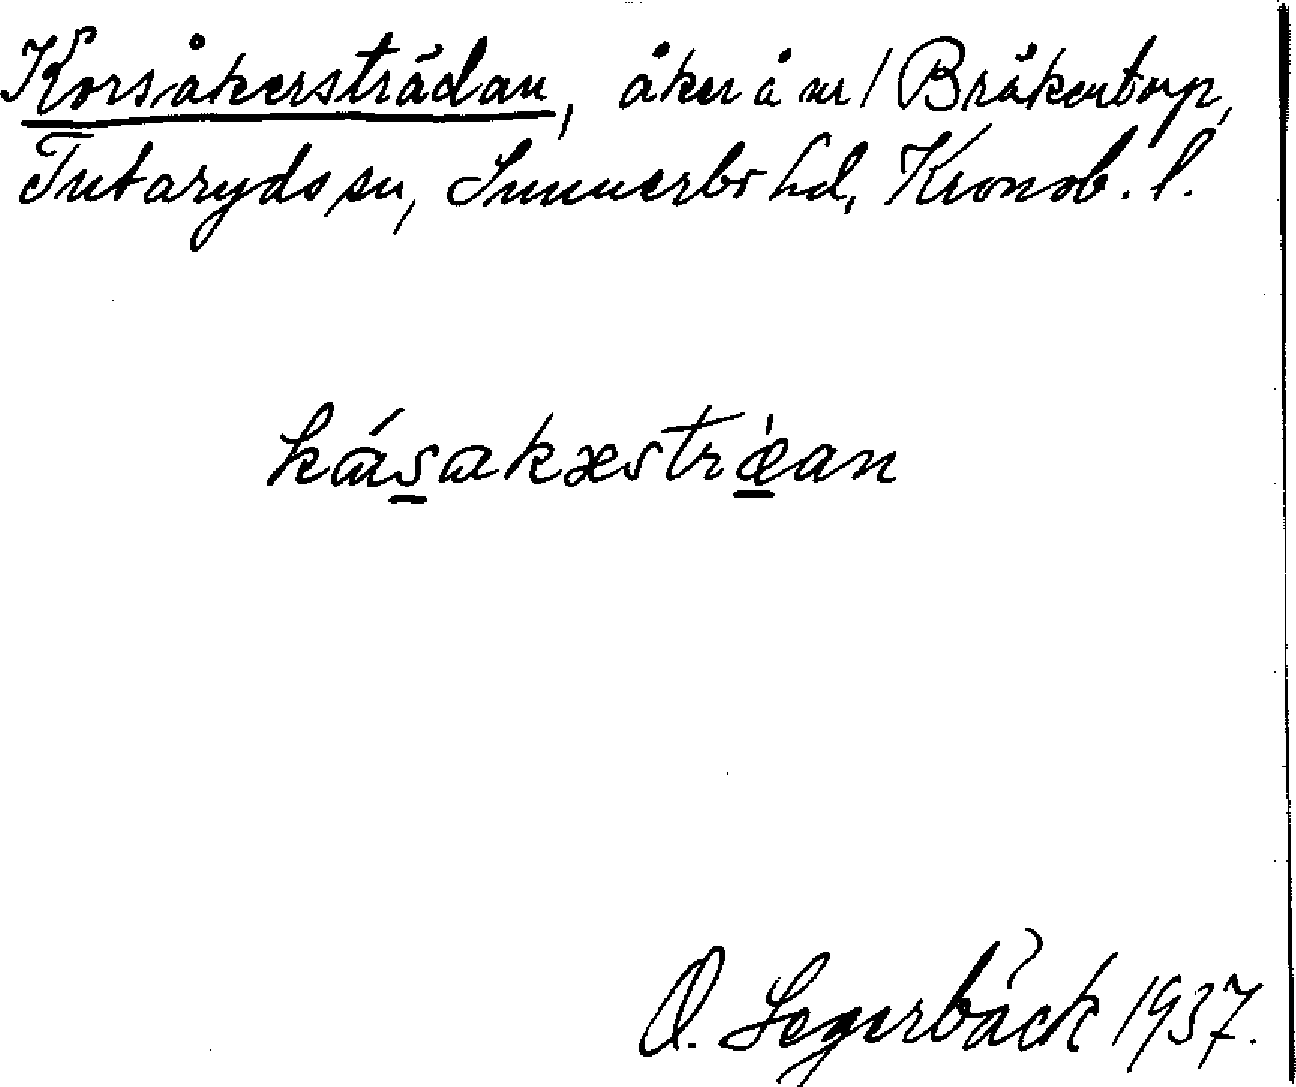 Korsåkersträdan, åker å nr 1 Bråkentorp,
Tutaryds sn, Sunnerbo hd, Kronob. l.
kási̲akæstræ̲an
O. Segerbäck 1937.